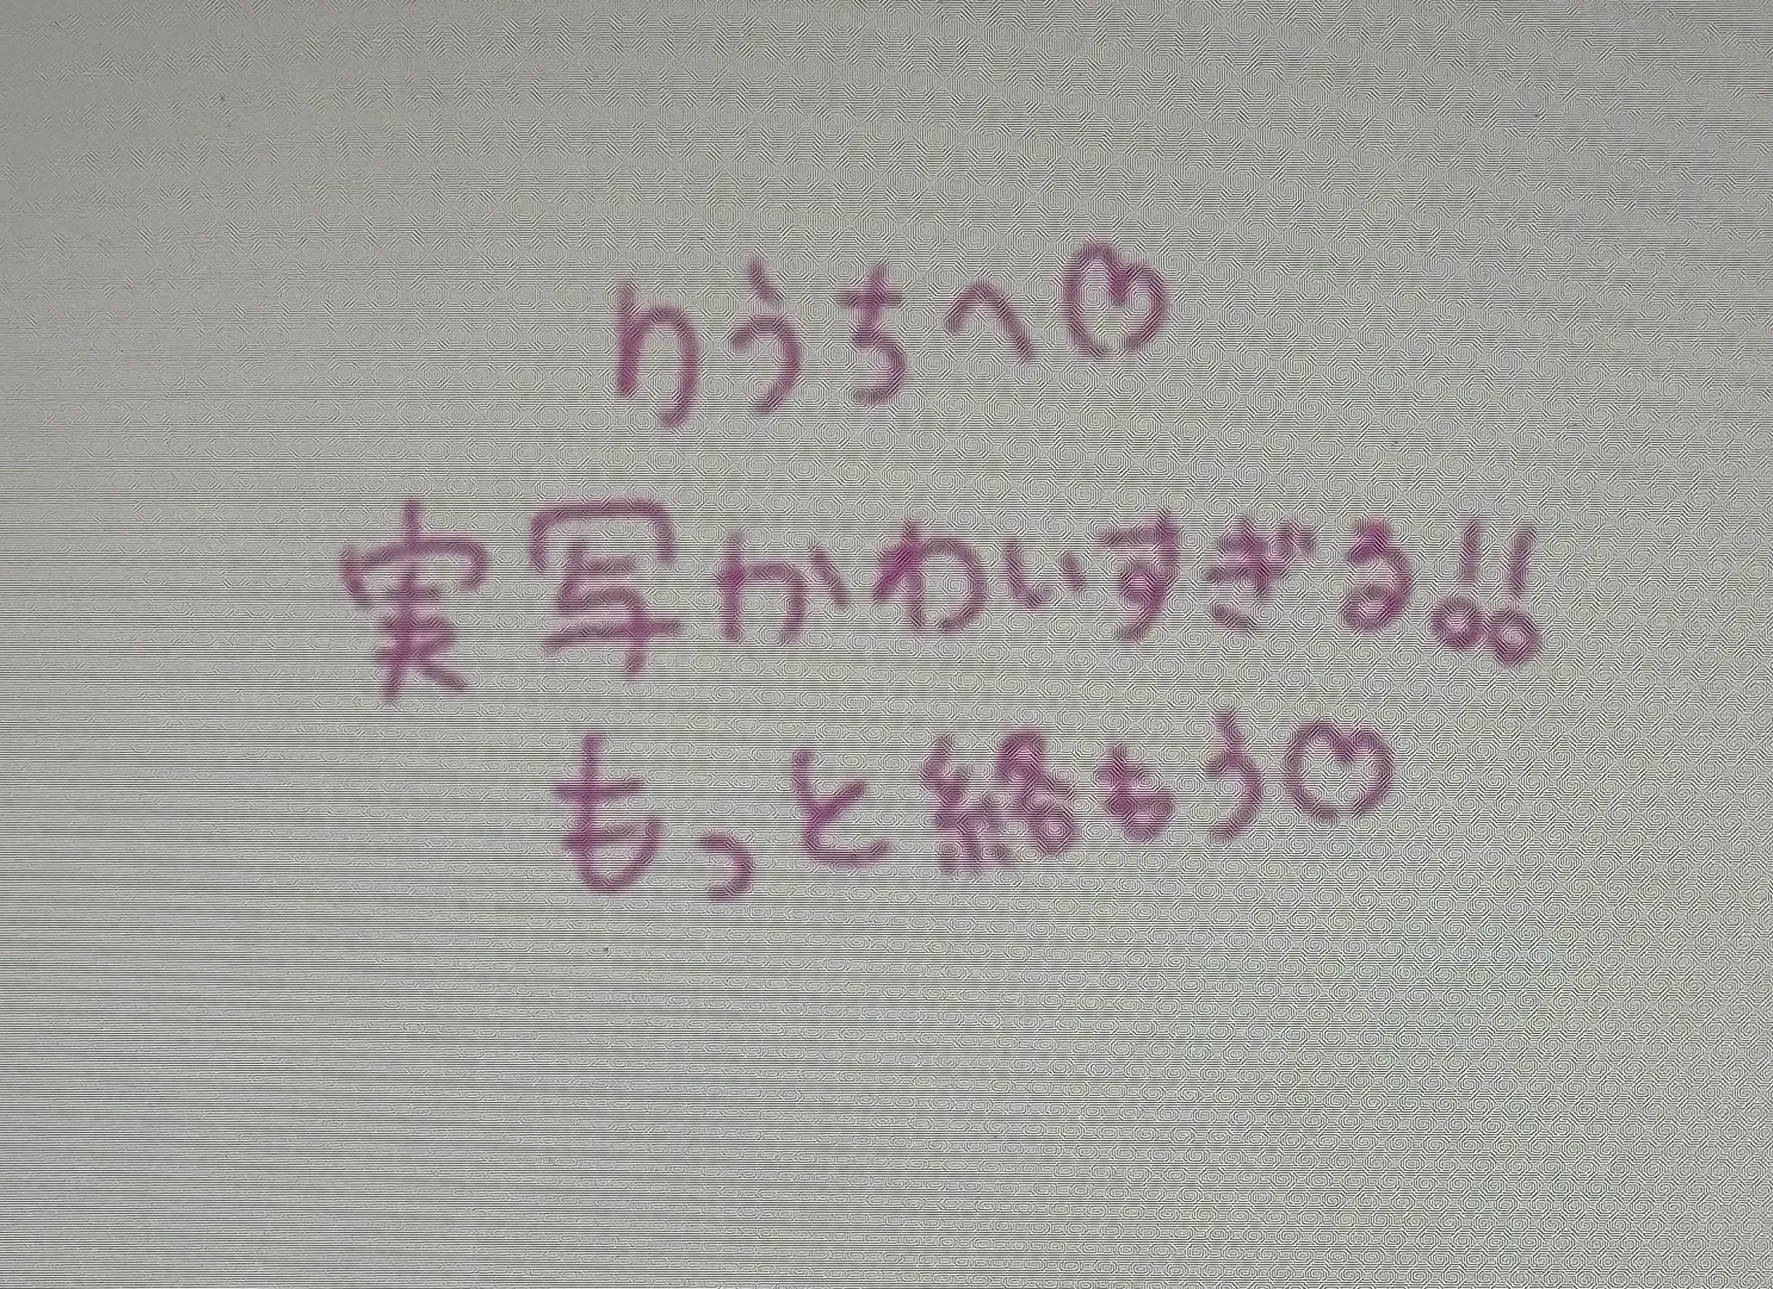 りうちへ♡
実写かわいすぎる!!
もっと絡もう♡